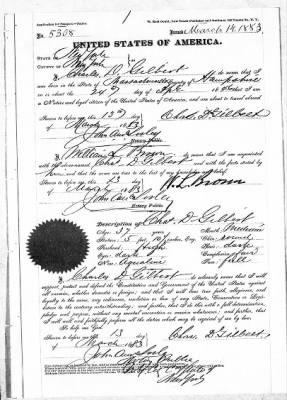 No. 5308
Issued March 14 1883
UNITED STATES OF AMERICA.
State of New York
County of New York
I, Charles D. Gilbert do swear that I
was born in the State of Massachusetts
on the 24th day of
a Native and loyal citizen of the United States of America, and am about to travel abroad
Sworn to before me, this 13th
day of March 1883
Chas D Gilbert
Notary Public
I, William L. Brown do swear that I am acquainted
with the above-named Chas D Gilbert and with the facts stated by
him, and that the same are true to the best of my knowledge and belief.
Sworn to before me, this 13
day of March 1883
W. L. Brown
Notary Public
Description of Chas. D. Gilbert
Age: 37
Mouth: Medium
Stature: 5
Chin: round
Forehead: high
Hair: dark
Eyes: dark
Complexion: fair
Nose: Aquiline
Face: full
I, Charles D Gilbert do solemnly swear that I will
support, protect and defend the Constitution and Government of the United States against
all enemies, whether domestic or foreign; and that I will bear true faith, allegiance, and
loyalty to the same, any ordinance, resolution or law of any State, Convention or Legis-
lature to the contrary notwithstanding; and further, that I do this with a full determination,
pledge and purpose, without any mental reservation or evasion whatsoever; and further, that
I will well and faithfully perform all the duties which may be required of me by law.
So help me God.
Sworn to before me, this 13
day of March 1883
Chas D Gilbert
Notary Public
New York